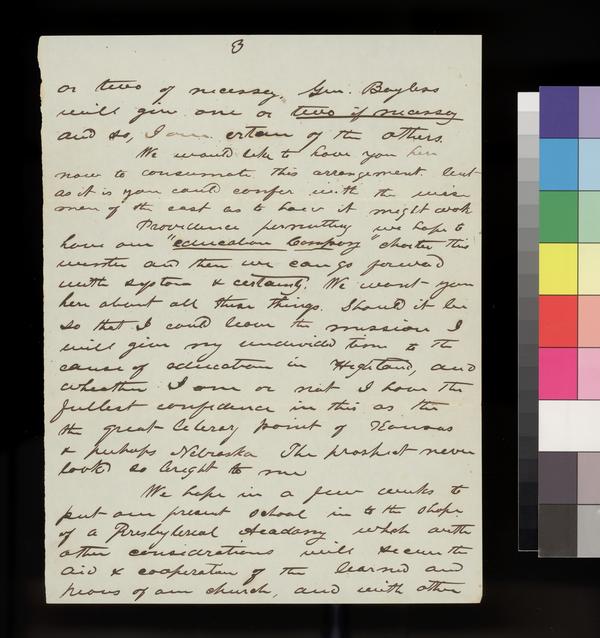 3
or two if necessary, Gen. Bayless
will give one or two if necessary
and so, I am certain of the others.
We would like to have you here
now to consumate this arrangement but
as it is you could confer with the wise
men of the east as to how it might work
Providence permitting we hope to
have our "education Company" charter this
winter and then we can go forward
with system & certainty. We want you
here about all these things. Should it be
so that I could leave the mission I
will give my undivided time to the
cause of education in Highland, and
whether I am or not I have the
fullest confidence in this as the
the great literary point of Kansas
& perhaps Nebraska The prospect never
looked so bright to me
We hope in a few weeks to
put our present school in to the shape
of a Presbyterial Academy which with
other considerations will secure the
aid & cooperation of the learned and
pious of our church, and with other